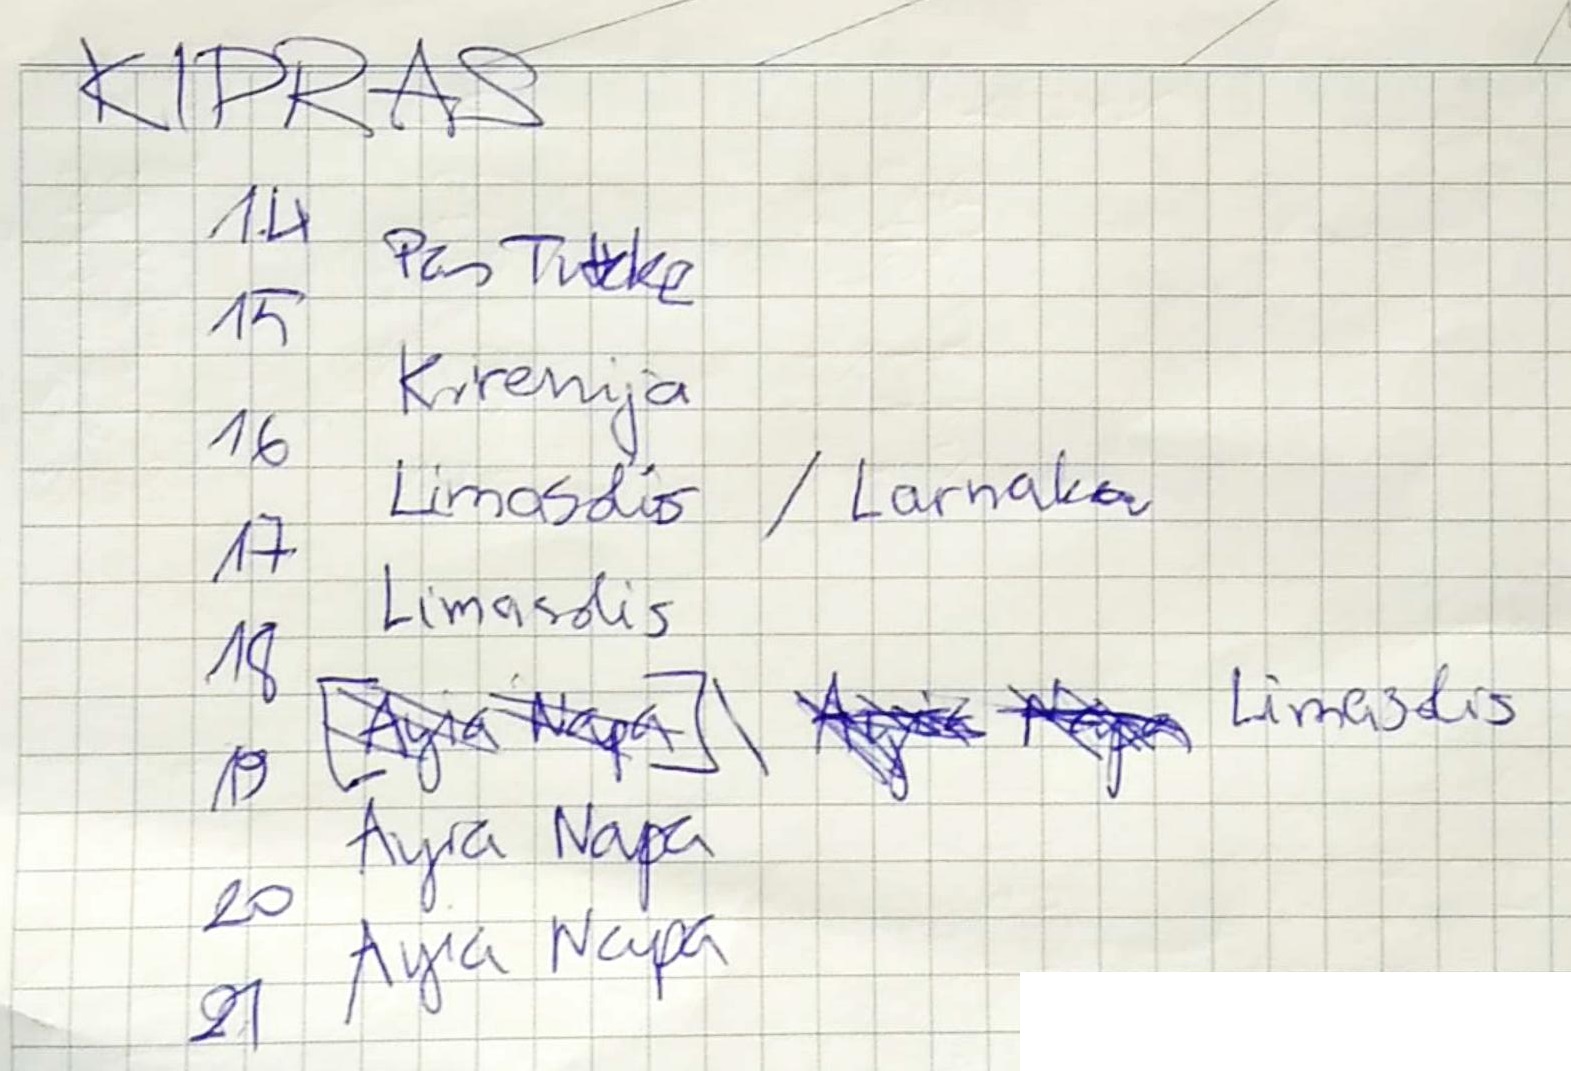 KIPRAS
14
Pas
15
Kirenija
16
Limasolis / Larnaka
17
Limasolis
18
Ayia Napa \ Ayia Napa Limasolis
19
Ayia Napa
20
Ayia Napa
21